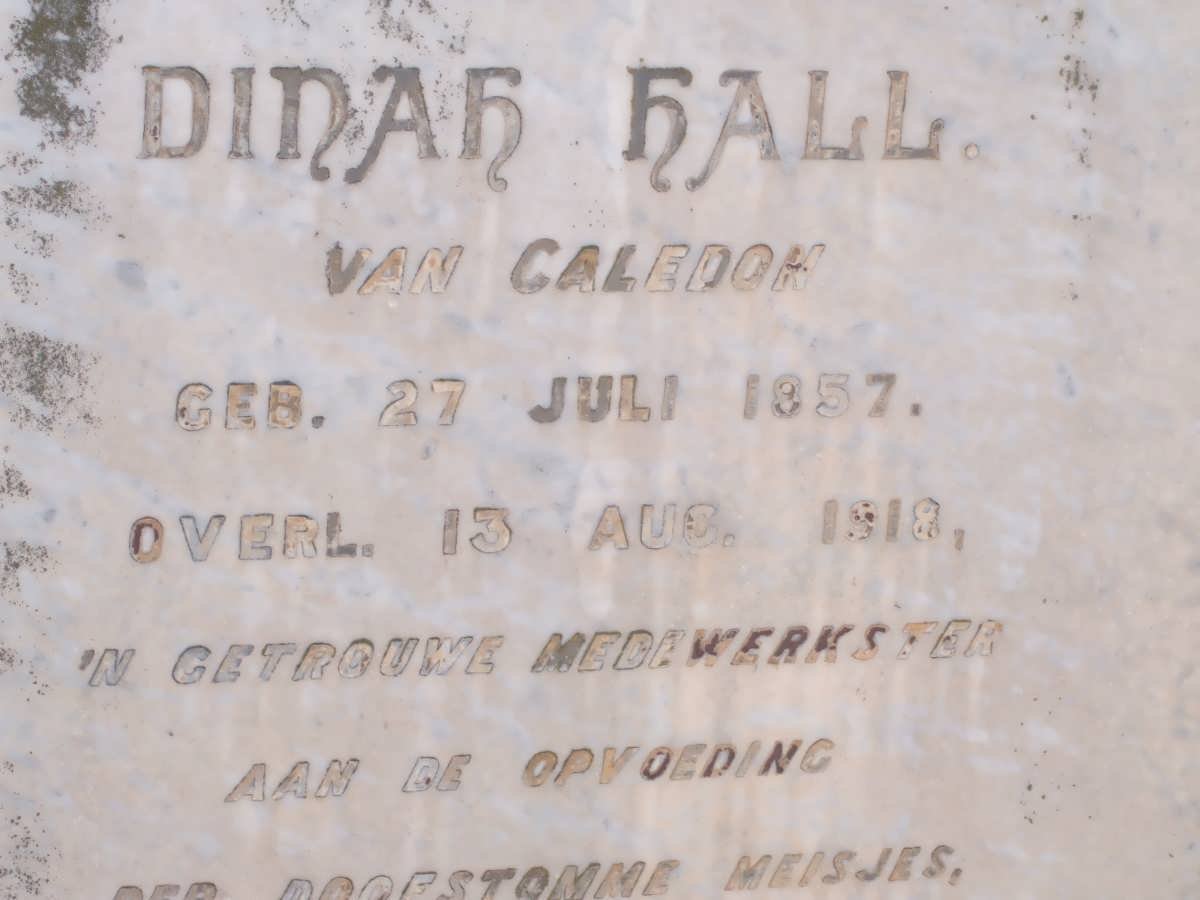 DINAH HALL.
VAN CALEDON
GEB. 27 JULI 1857.
OVERL. 13 AUG. 1918,
'N GETROUWE MEDEWERKSTER
AAN DE OPVOEDING
DER DOOFSTOMME MEISJES,